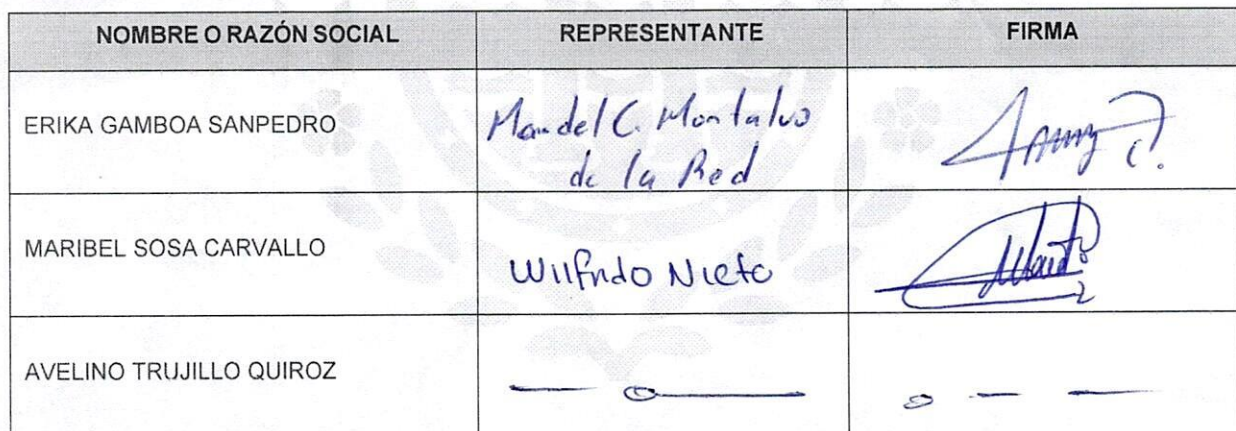 NOMBRE O RAZÓN SOCIAL REPRESENTANTE FIRMA
ERIKA GAMBOA SANPEDRO Mandel C. Montalvo
de la Red
MARIBEL SOSA CARVALLO Wilfrido Nieto
AVELINO TRUJILLO QUIROZ